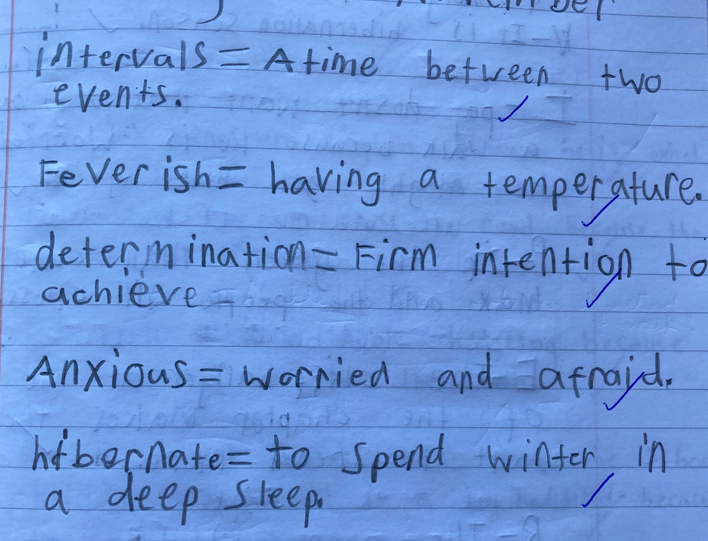 intervals = A time between two
events.
Feverish = having a temperature.
determination = Firm intention to
achieve
Anxious = worried and afraid.
hibernate = to spend winter in
a deep sleep.